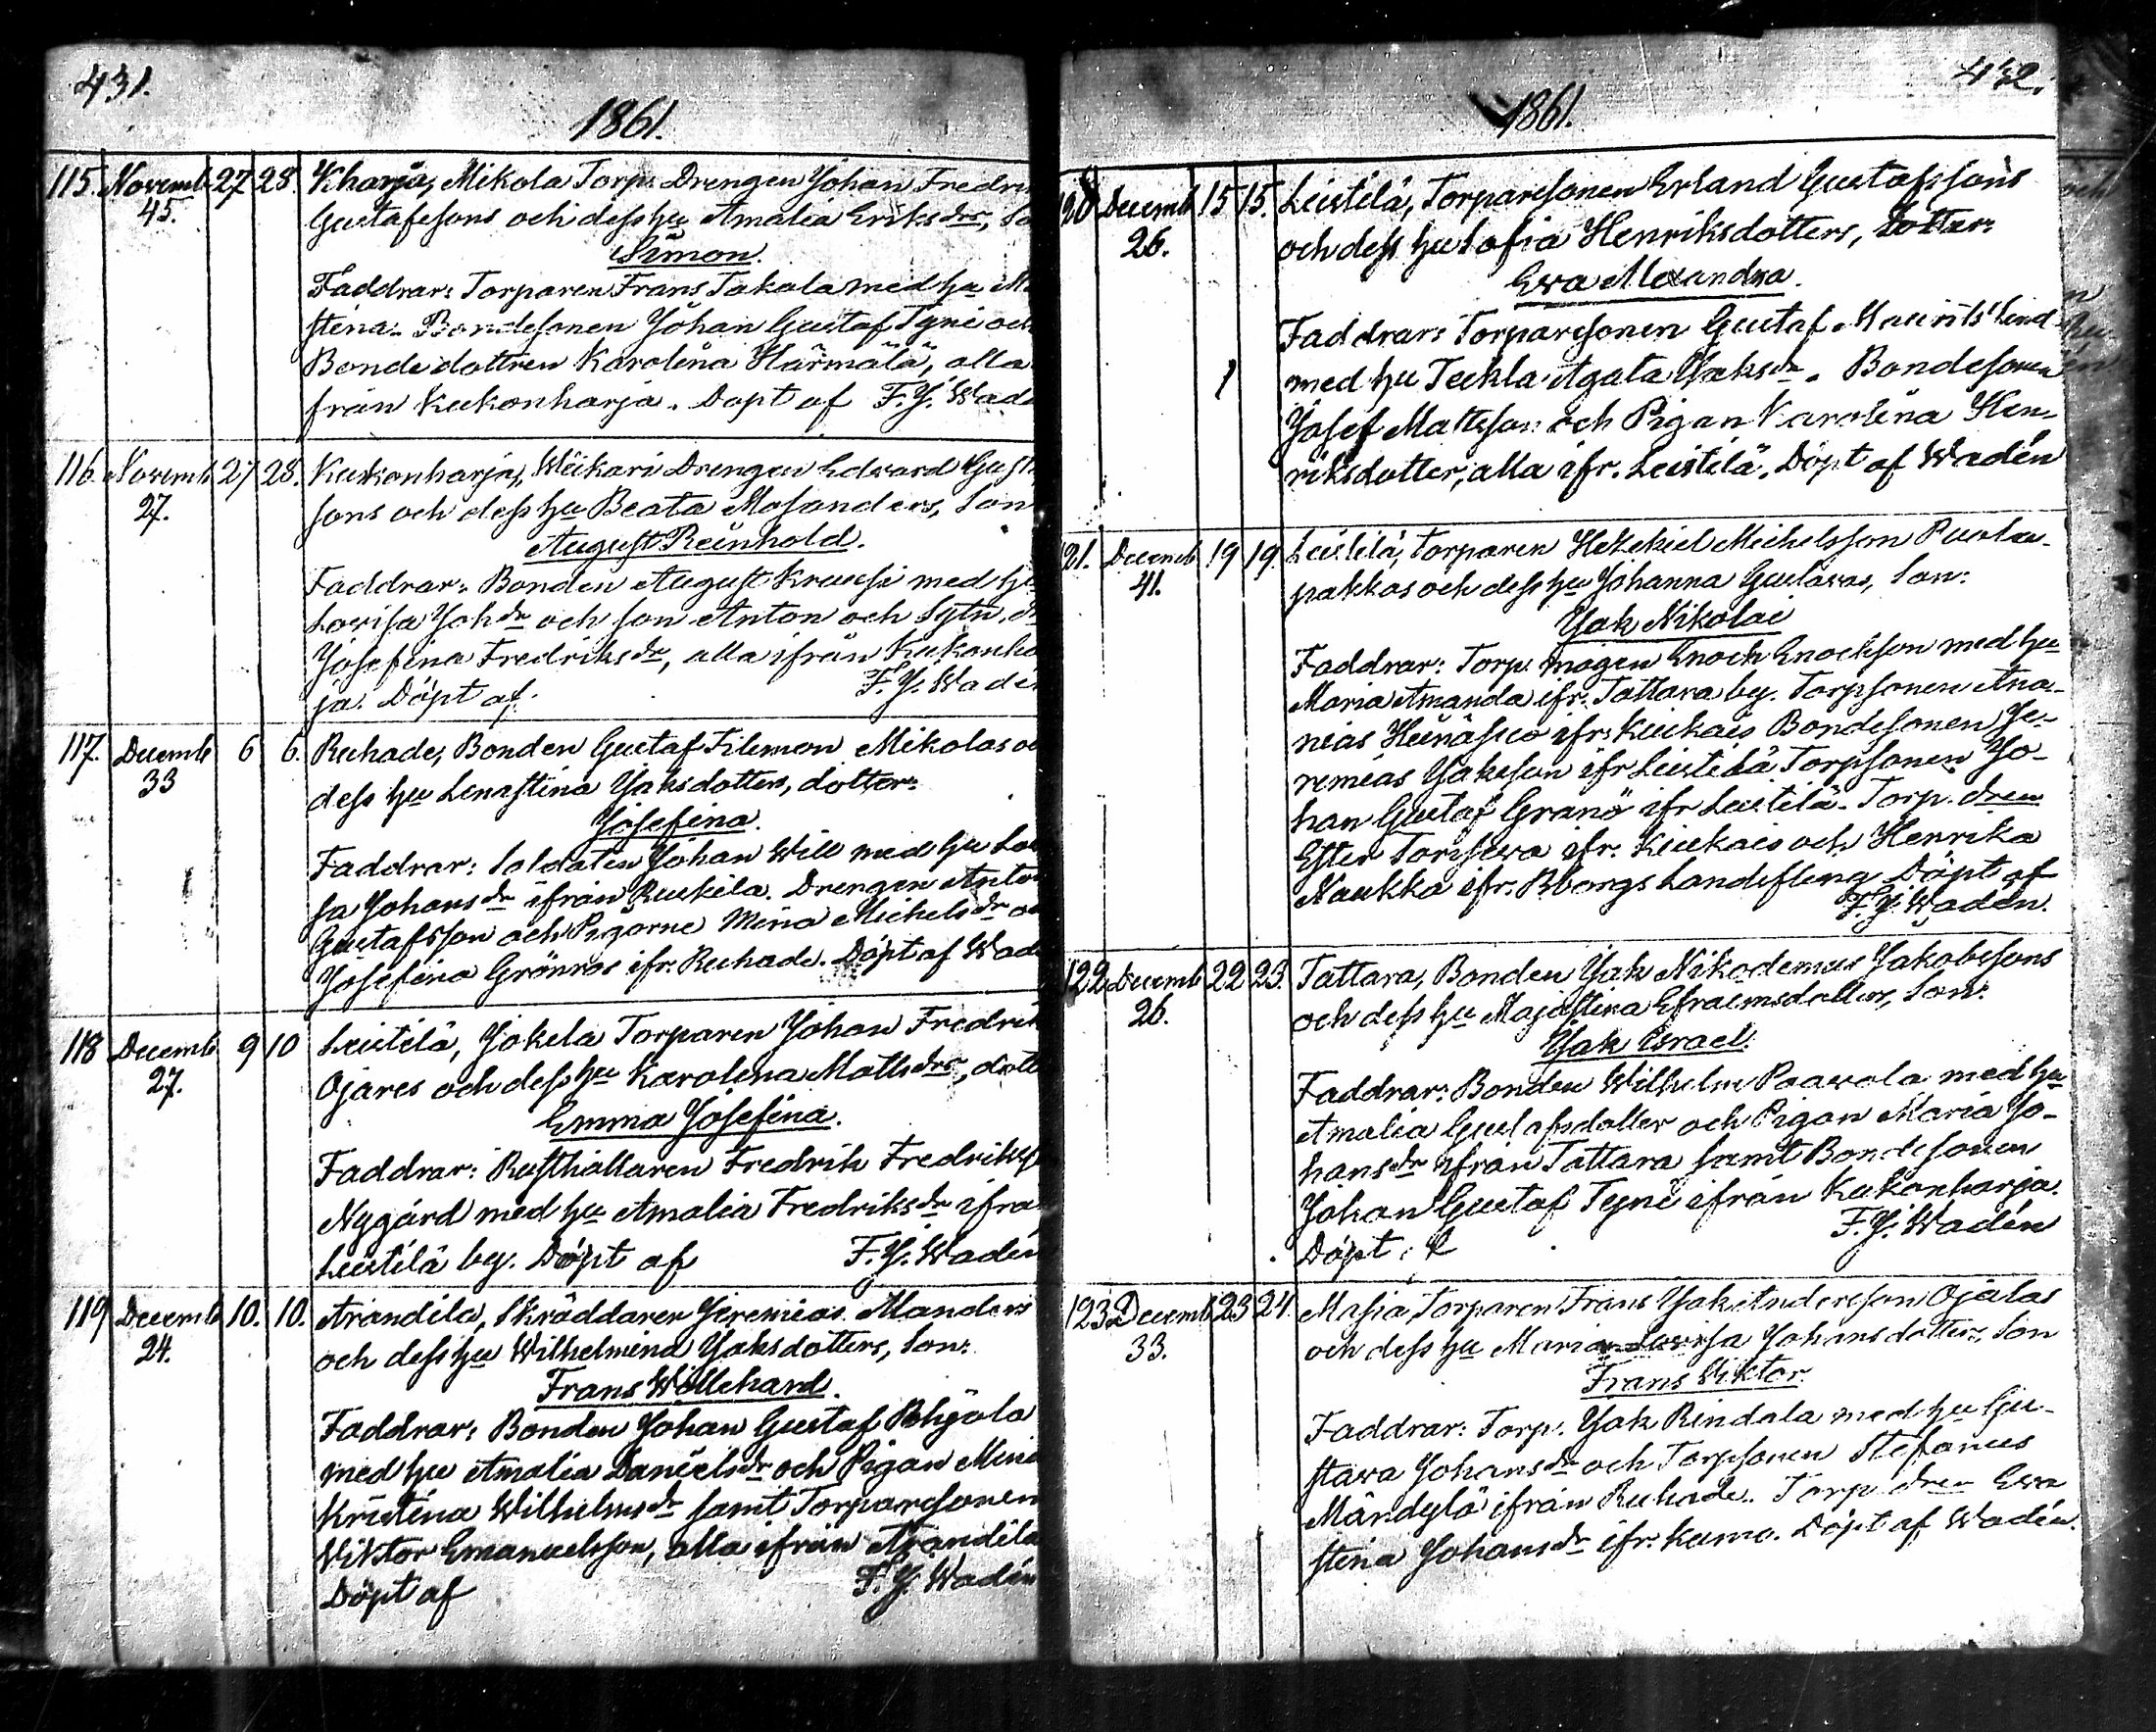 431.
1861.
115. Novemb 27 28. Kharja, Mikola Torp. Drengen Johan Fredri
45. Gustafssons och dess hu Amalia Eriksdrs, So
Simon.
Faddrar: Torparen Frans Takala med hu
stina. Bondesonen Johan Gustaf Tyni och
Bondedottren Karolina Härmälä, alla
från Kukonharja. Döpt af F. J. Wadé
116. Novemb 27 28. Kukonharja, Wiikari Drengen Edvard Gust
27. sons och dess hu Beata Mosanders, Son
August Reinhold.
Faddrar: Bonden August Krunsi med hu
Lovisa Johdr och son Anton och Sytn.
Josefina Fredriksdr, alla ifrån Kukonha
ja. Döpt af F. J. Wadén
117. Decemb 6 6. Ruhade, Bonden Gustaf Filemon Mikolas oc
33 dess hu Lenastina Jaksdotters, dotter:
Josefina.
Faddrar: Soldaten Johan Will med hu Lov
sa Johansdr ifrån Ruskila. Drengen Anton
Gustafsson och Pigorne Mina Michelsdr oc
Josefina Grönroos ifr. Ruhade. Döpt af Wadé
118 Decemb 9 10 Leistilä, Jokela Torparen Johan Fredrik
27. Ojares och dess hu Karolina Mattsdrs, dott
Emma Josefina.
Faddrar: Rusthållaren Fredrik Fredriksso
Nygård med hu Amalia Fredriksdr ifrå
Leistilä by. Döpt af F. J. Wadén
119 Decemb 10. 10. Arandila, Skräddaren Jeremias Manders
24. och dess hu Wilhelmina Jaksdotters, Son:
Frans Willehard.
Faddrar: Bonden Johan Gustaf Pohjola
med hu Amalia Danielsdr och Pigan Mina
Kristina Wilhelmsdr samt Torparesonen
Wiktor Emanuelsson, alla ifrån Arandila
Döpt af F. J. Wadén
432.
1861.
120 Decemb 15 15. Leistilä, Torparesonen Erland Gustafssons
26. och dess hu Sofia Henriksdotters, Dotter:
Ewa Alexandra.
Faddrar: Torparesonen Gustaf Maurits Lind
med hu Teckla Agata Jaksdr. Bondesonen
Josef Mattsson och Pigan Karolina Hen-
riksdotter, alla ifr. Leistilä. Döpt af Wadén
121. Decemb 19 19. Leistilä, Torparen Hezekiel Michelsson Puola-
41. pakkas och dess hu Johanna Gustavas, Son:
Jak Nikolai
Faddrar: Torp. mågen Enoch Enochsson med hu
Maria Amanda ifr. Tattara by. Torpsonen Ana-
nias Heinäsuo ifr. Kiukais Bondesonen Je-
remias Jaksson ifr Leistilä Torpsonen Jo-
han Gustaf Granö ifr Leistilä. Torp. dren
Ester Torissewa ifr. Kiukais och Henrika
Naukka ifr. Bborgs Landsfling Döpt af
F. J. Wadén.
122 Decemb 22 23. Tattara, Bonden Jak Nikodemus Jakobssons
26. och dess hu Majastina Efraimsdotters, Son:
Jak Israel.
Faddrar: Bonden Wilhelm Paavola med hu
Amalia Gustafsdotter och Pigan Maria Jo-
hansdr ifrån Tattara samt Bondesonen
Johan Gustaf Tyni ifrån Kukonharja.
Döpt F. J. Wadén
123 Decemb 23 24. Masia, Torparen Frans Jak Andersson Ojalas
33. och dess hu Maria Lovisa Johansdotters, Son
Frans Wiktor.
Faddrar: Torp. Jak Rindala med hu Gu-
stava Johansdr och Torpsonen Stefanus
Mändylä ifrån Ruhade. Torp. dren Ewa
stina Johansdr ifr. Kumo. Döpt af Wadén.